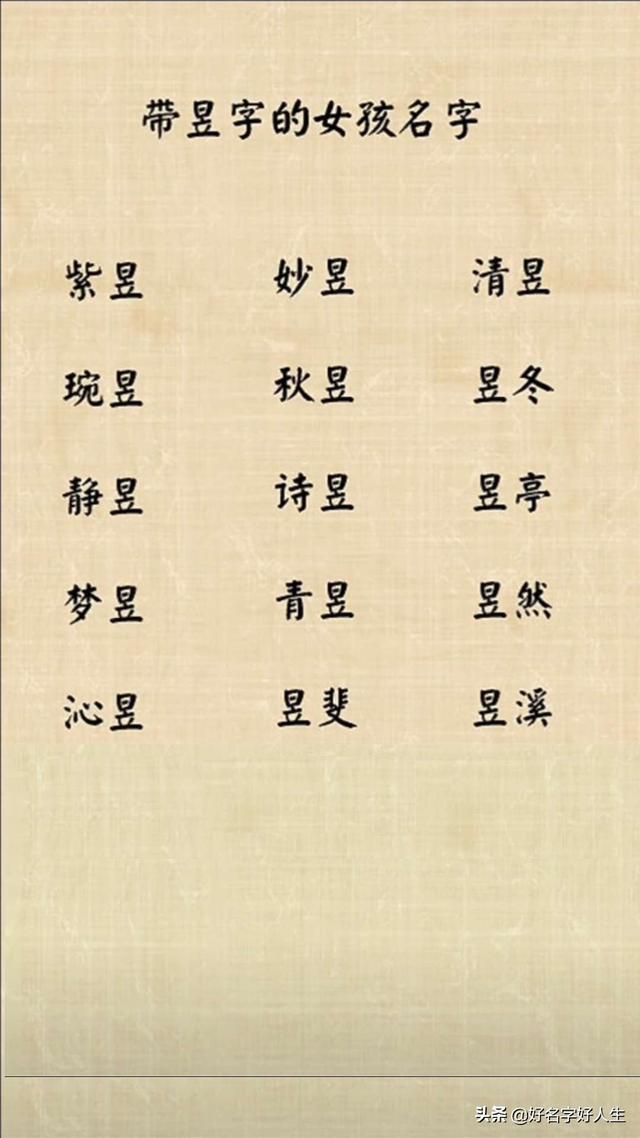 帶昱字的女孩名字
紫昱 妙昱 清昱
琬昱 秋昱 昱冬
静昱 诗昱 昱亭
梦昱 青昱 昱然
沁昱 昱斐 昱溪
头条 @好名字好人生